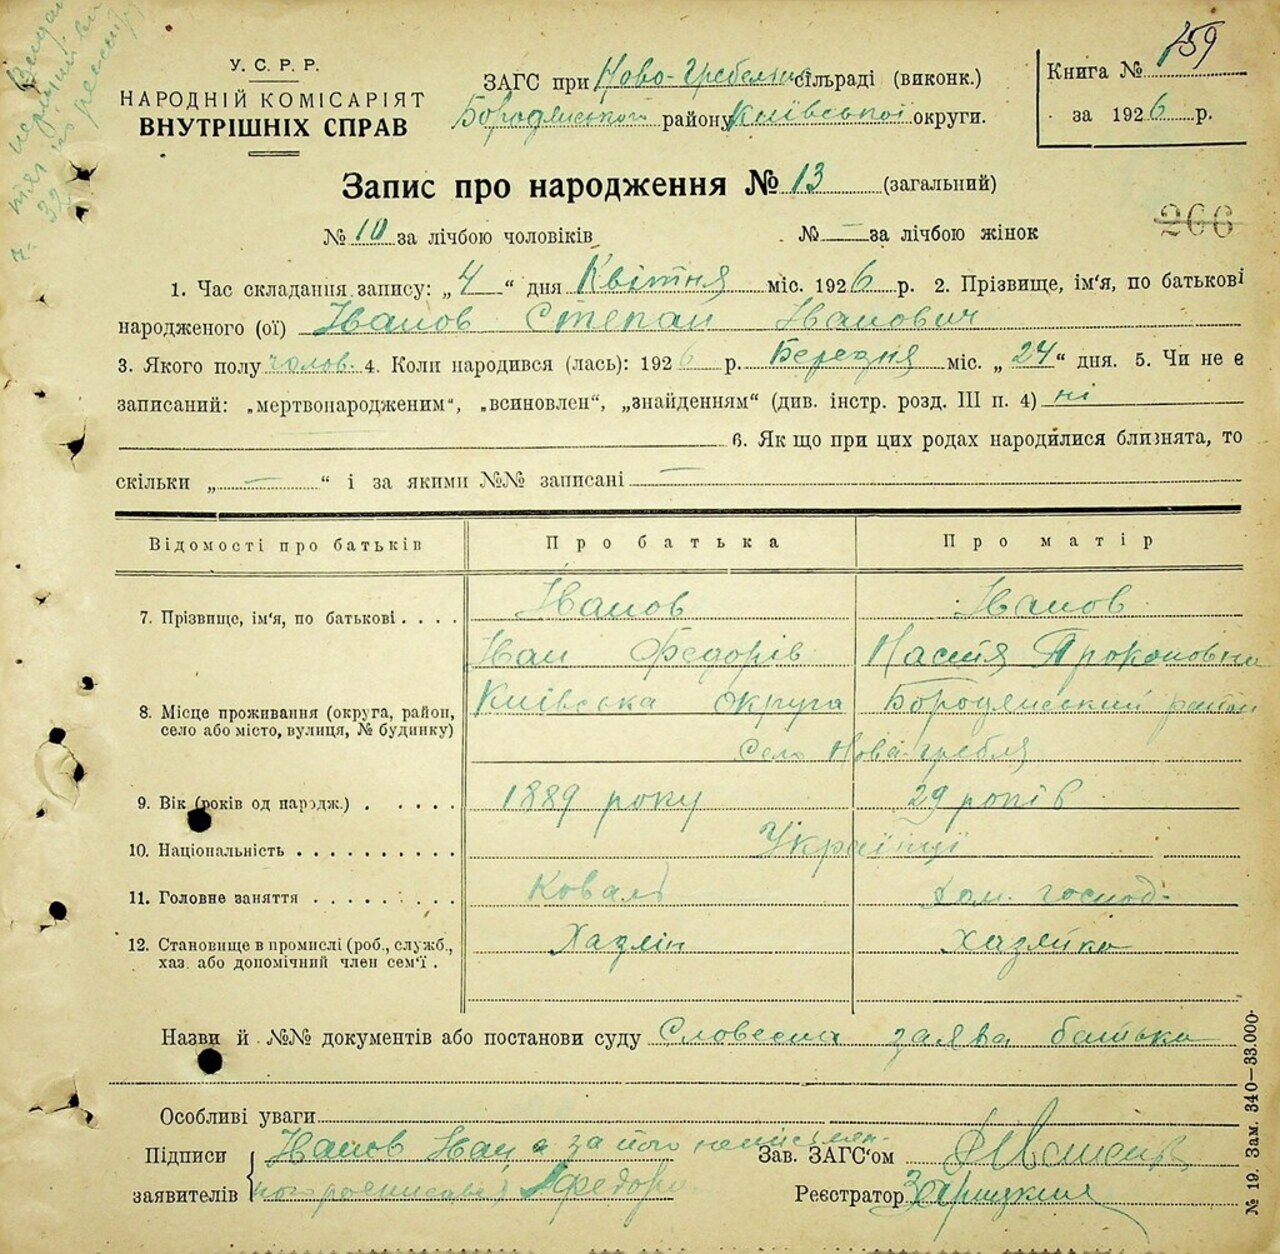 У. С. Р. Р.
НАРОДНІЙ КОМІСАРІЯТ
ВНУТРІШНІХ СПРАВ
ЗАГС при Ново-Гребельс сільраді (виконк.)
Бородянського району Київської округи.
Книга №
159
за 1926 р.
Запис про народження № 13 (загальний)
№ 10 за лічбою чоловіків № — за лічбою жінок
266
1. Час складання запису: „4“ дня Квітня міс. 1926 р. 2. Прізвище, ім‘я, по батькові
народженого (ої) Іванов Степан Іванович
3. Якого полу чолов. 4. Коли народився (лась): 1926 р. Березня міс. „24“ дня. 5. Чи не є
записаний: „мертвонародженим“, „всиновлен“, „знайденням“ (див. інстр. розд. III п. 4) ні
6. Як що при цих родах народилися близнята, то
скільки „ — “ і за якими №№ записані —
Відомості про батьків Про батька Про матір
Іванов Іванов
7. Прізвище, ім‘я, по батькові . . . .
Іван Федорів Настя Прокоповна
Київська округа Бородянський район
8. Місце проживання (округа, район,
село або місто, вулиця, № будинку)
Село Нова-Гребля
9. Вік (років од народж.) . . . . . 1889 року 29 років
10. Національність . . . . . . . . . . Українці
11. Головне заняття . . . . . . . . . Коваль дом. господ.
12. Становище в промислі (роб., служб., Хазяїн Хазяйка
хаз. або допомічний член сем‘ї .
Назви й №№ документів або постанови суду Словесна заява батька
Особливі уваги
Підписи
заявителів
Іванов Іван а за його неписьмен-
ного росписався Федорів
Зав. ЗАГС‘ом
Реєстратор Зарицкий
№ 19. Зам. 340—33.000.